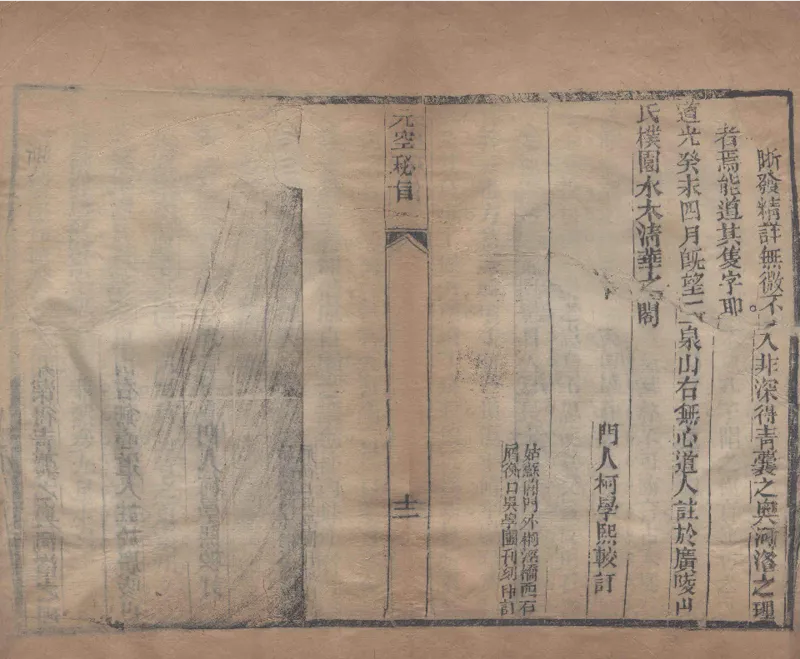 晰發精詳無微不入非深得青囊之奧河洛之理
者焉能道其隻字耶
道光癸未四月既望二泉山右無心道人註於廣陵
氏樸園水木清華之閣
門人柯學熙較訂
姑蘇閶門外桐涇橋西石
屑衖口吳學圃刊刻印訂
元空秘旨
十二